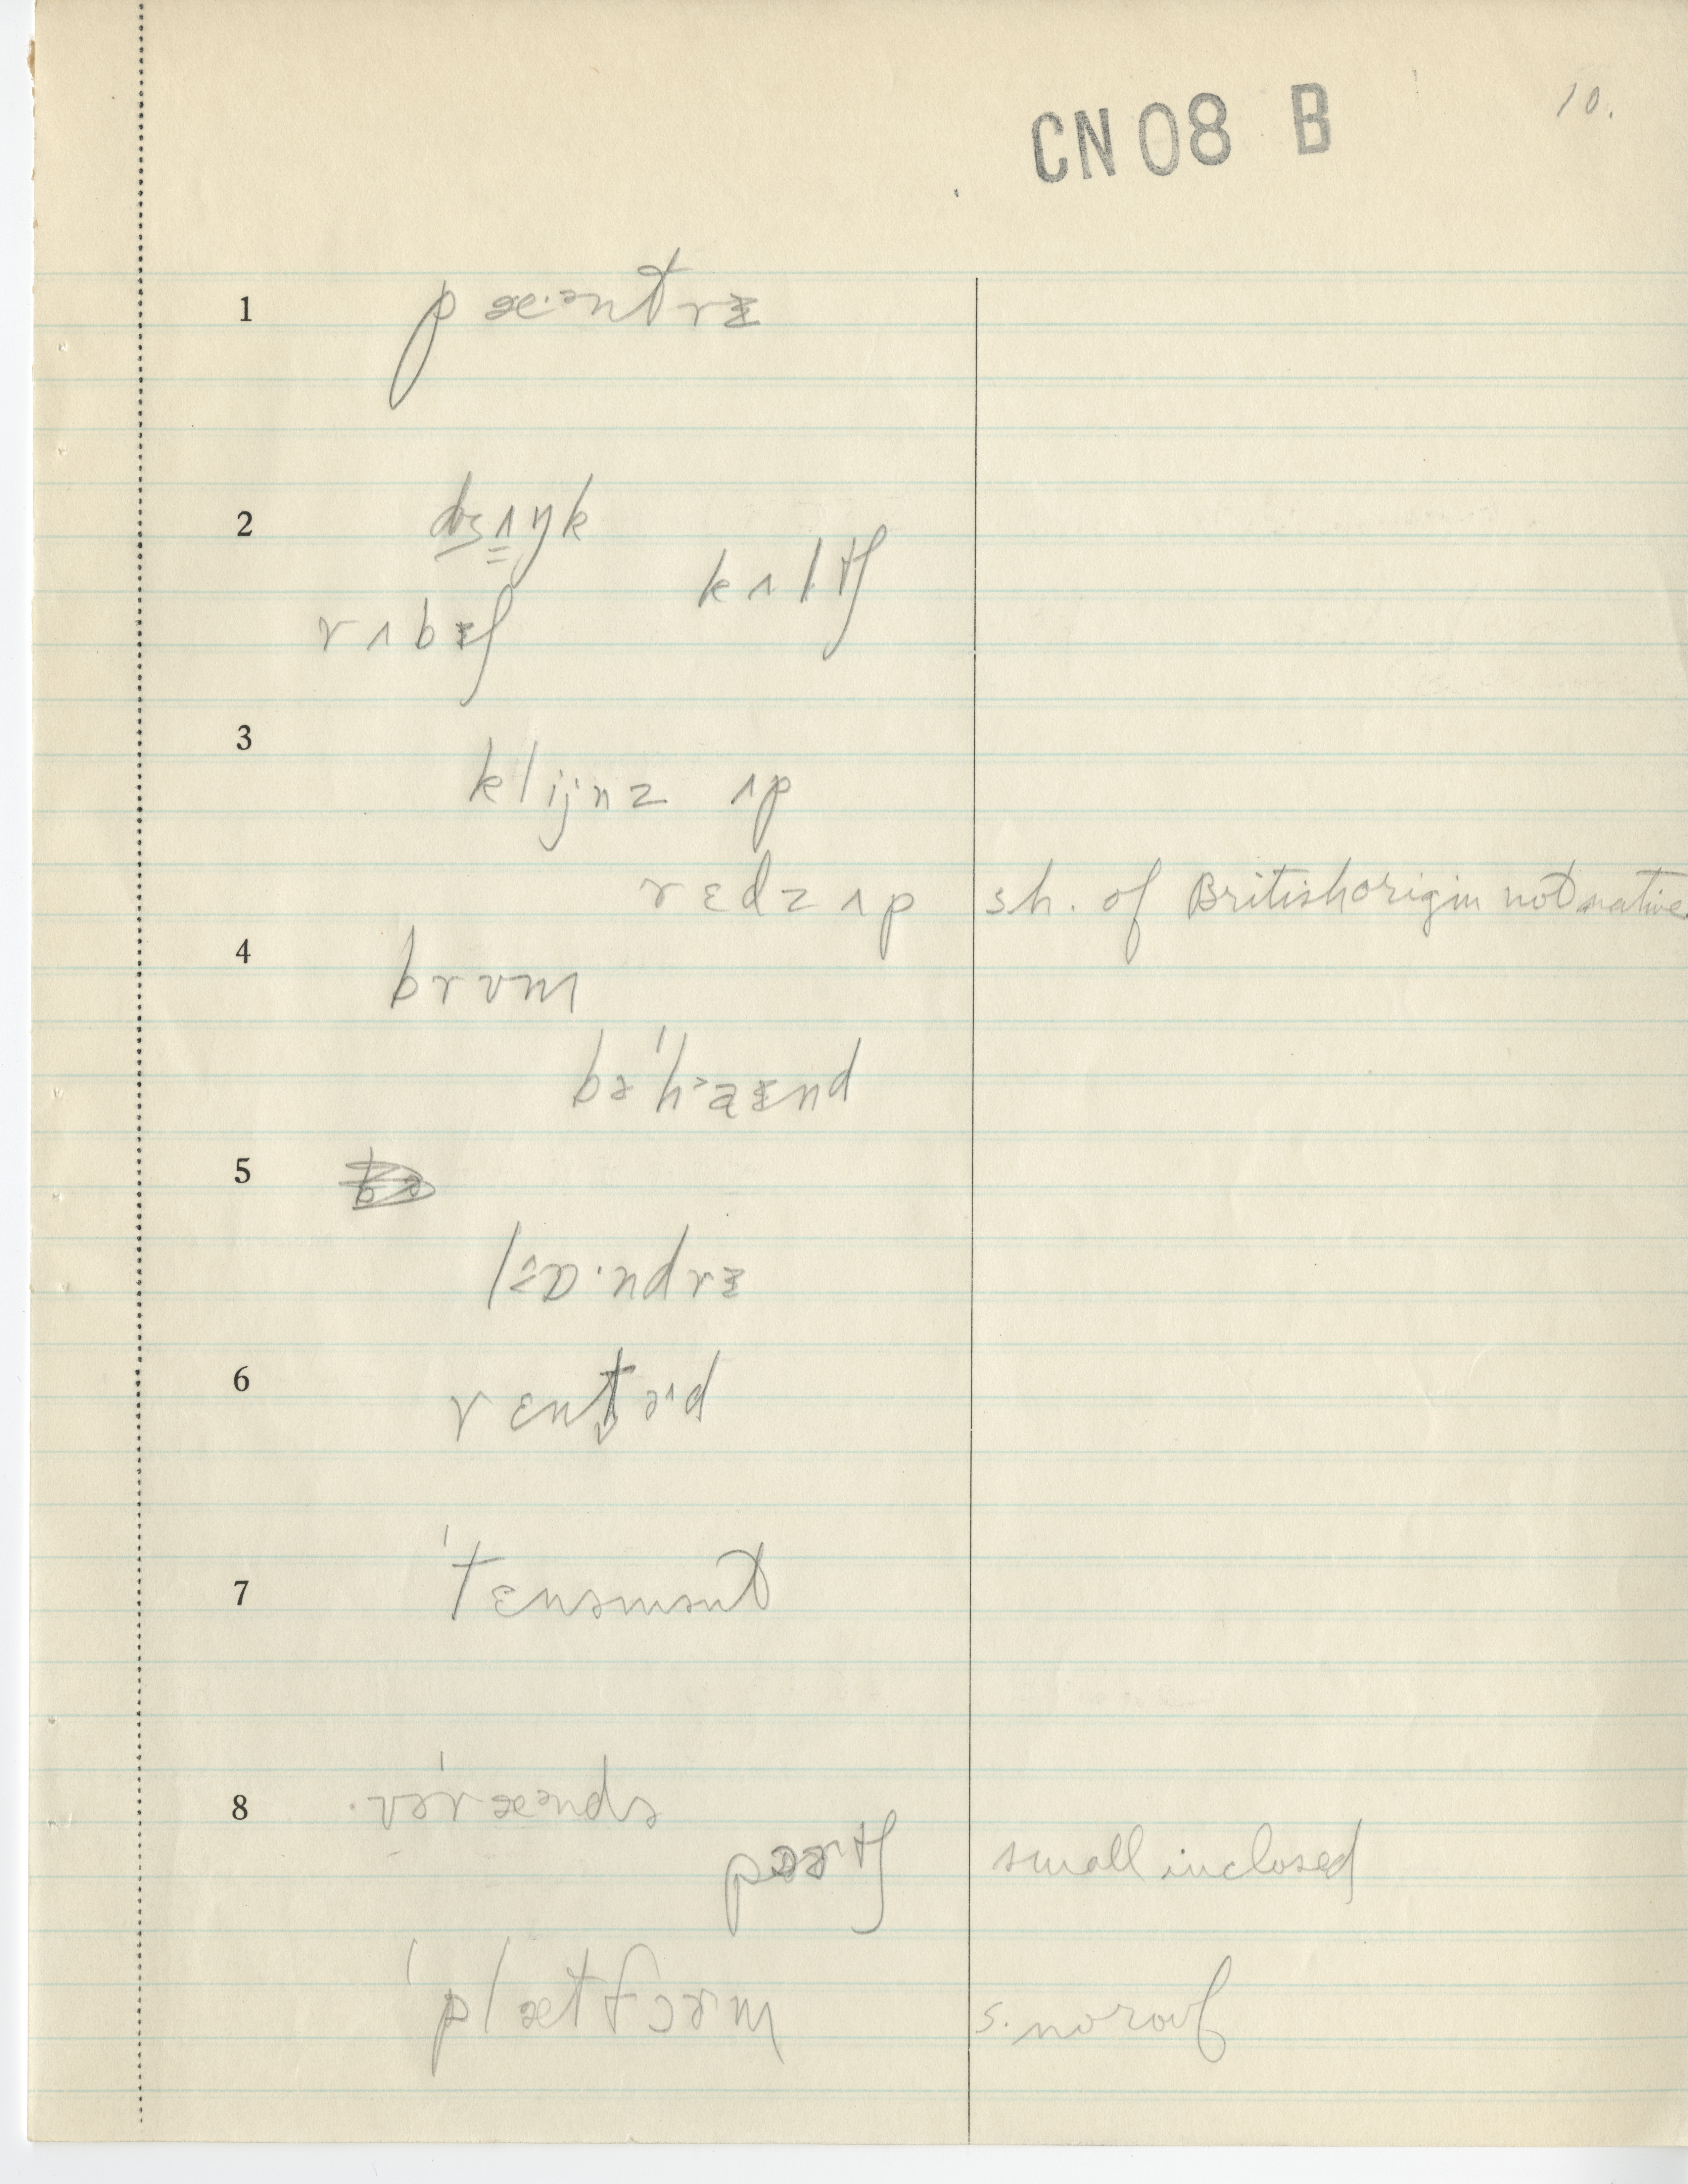 CN08 B
10.
1 pæ·ᵊntrɪ̵
2 dʒʌŋk
kʌltʃ
rʌbɪ̵ʃ
3 klijnz ʌp
rɛdz ʌp sh. of British origin not native
4 brʊm
bəˈhaɪ̵nd
5
lɒ·ndrɪ̵
6
7 ˈtɛnəmənt
8 vəˈræᵊndə
pɔɚtʃ small inclosed
ˈplætfɔɚm s. no roof